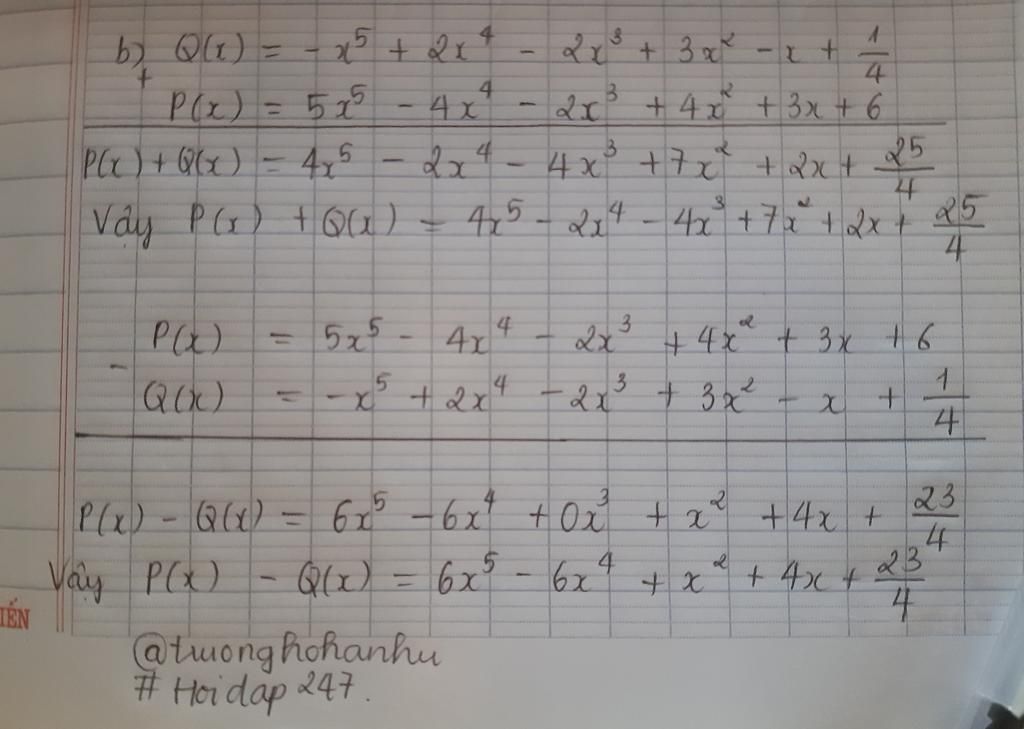 b) Q(x) = - x⁵ + 2x⁴ - 2x³ + 3x² - x + 1/4
+
P(x) = 5x⁵ - 4x⁴ - 2x³ + 4x² + 3x + 6
P(x) + Q(x) = 4x⁵ - 2x⁴ - 4x³ + 7x² + 2x + 25/4
Vậy P(x) + Q(x) = 4x⁵ - 2x⁴ - 4x³ + 7x² + 2x + 25/4
P(x) = 5x⁵ - 4x⁴ - 2x³ + 4x² + 3x + 6
-
Q(x) = -x⁵ + 2x⁴ - 2x³ + 3x² - x + 1/4
P(x) - Q(x) = 6x⁵ - 6x⁴ + 0x³ + x² + 4x + 23/4
Vậy P(x) - Q(x) = 6x⁵ - 6x⁴ + x² + 4x + 23/4
IẾN
@truonghohanhu
# Hoidap 247.